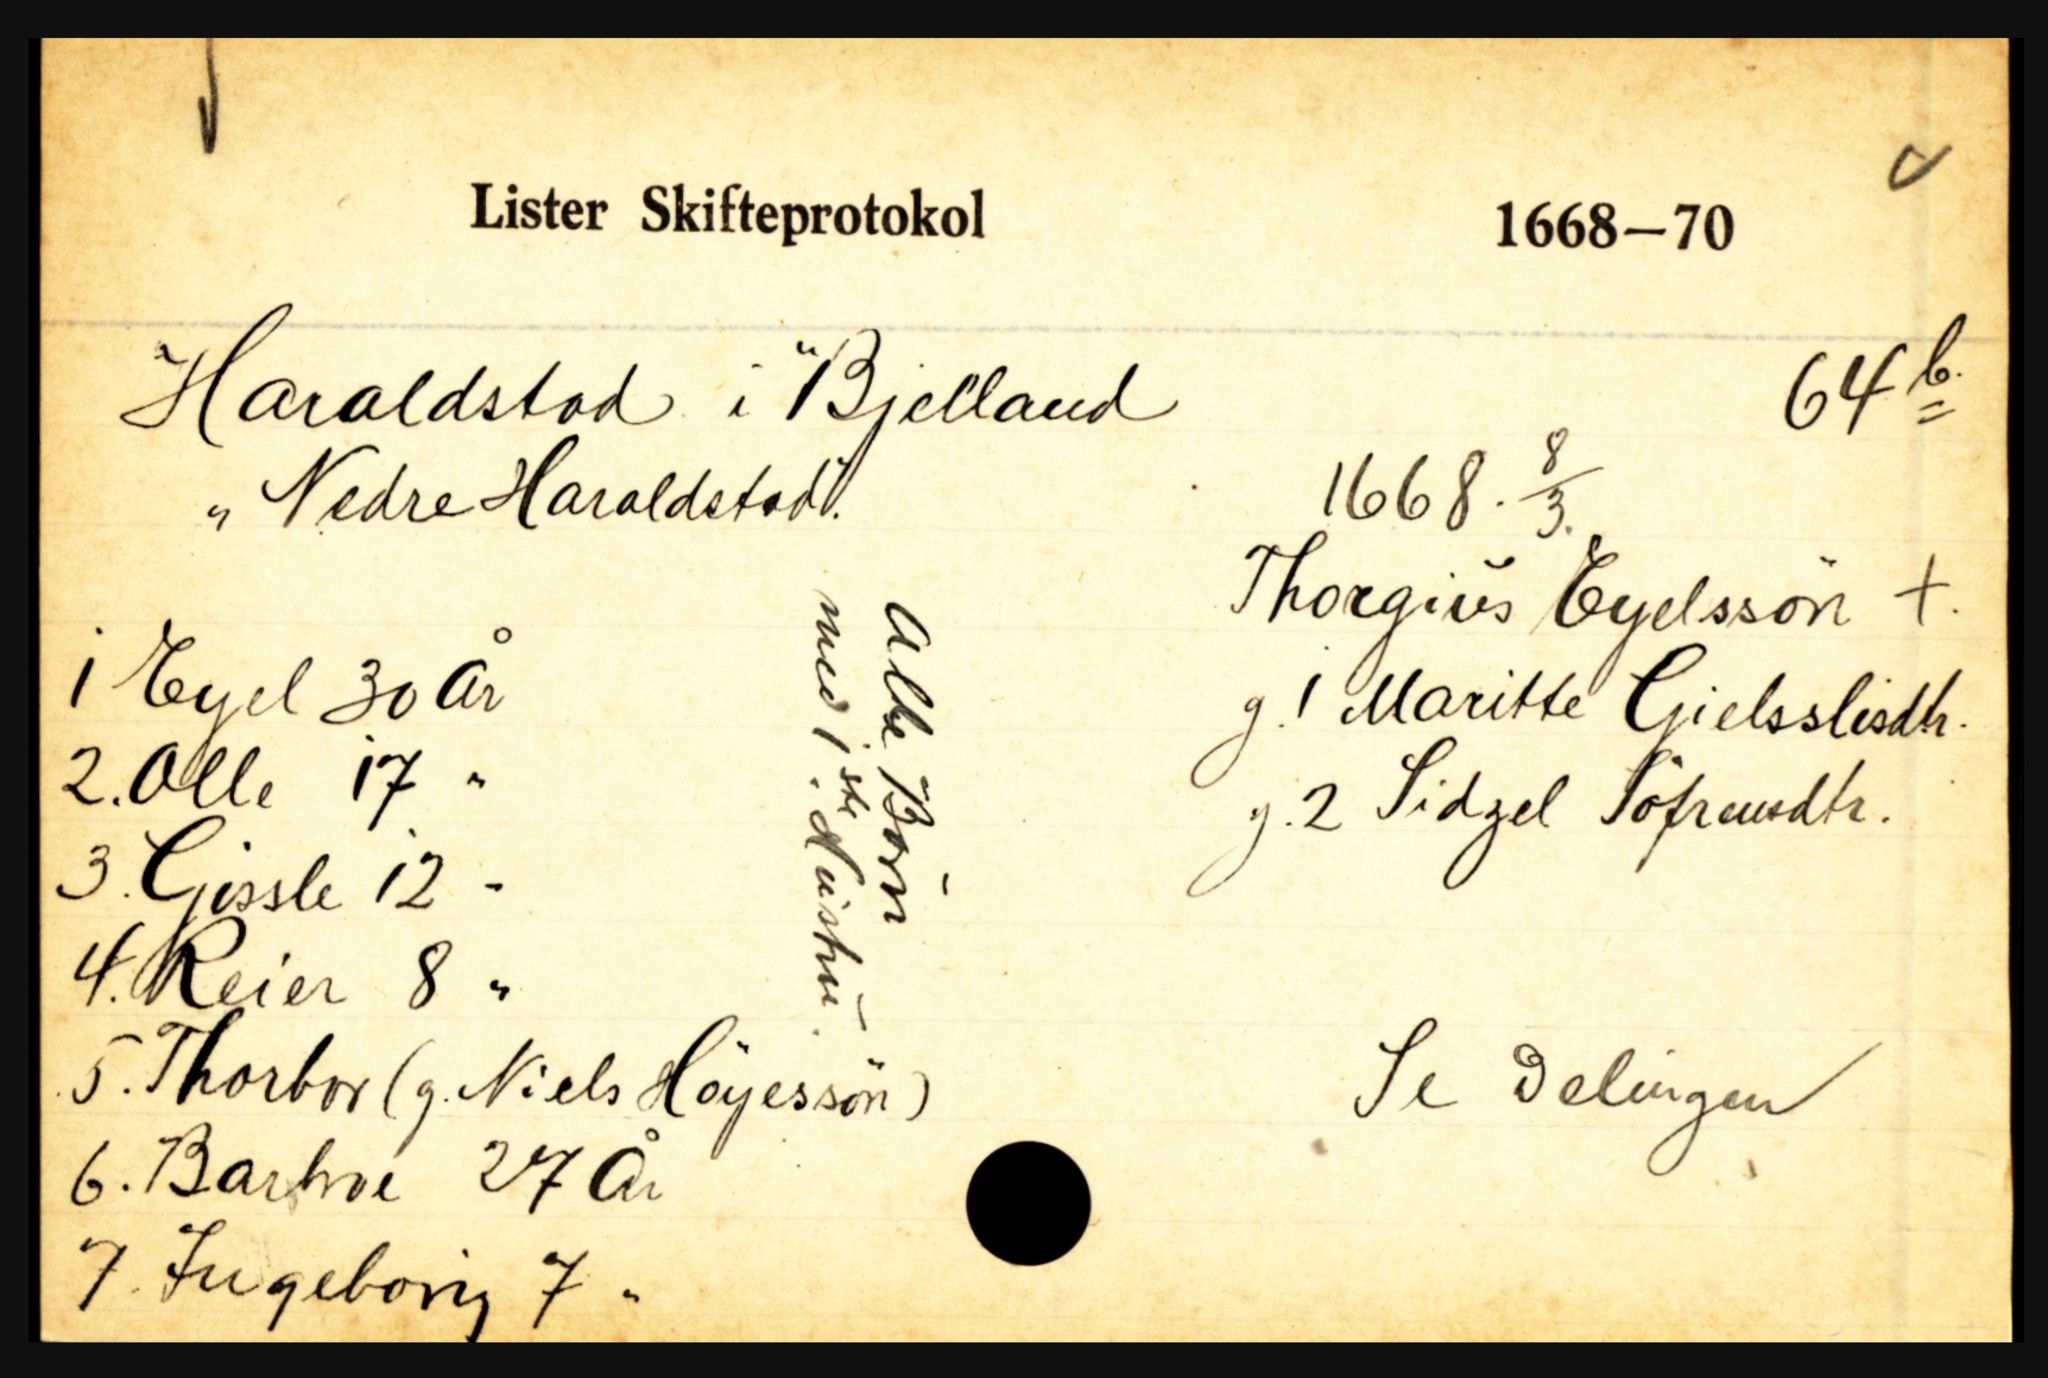 Lister Skifteprotokol 1668—70
Haraldstad i Bjelland 64 b.
" Nedre Haraldstad".
1668. 8/3.
Thorgiŭs Eyelssön +.
g. 1 Maritte Gielsslisdtr.
g. 2 Sidzel Söfrensdtr.
1 Eyel 30 År
2. Olle 17 "
3. Gissle 12 "
4. Reier 8 "
5. Thorbor (g. Niels Höyessön)
6. Barbroe 27 År
7. Ingeborig 7 "
Alle Börn
med 1ste Hŭstrŭ.
Se Delingen